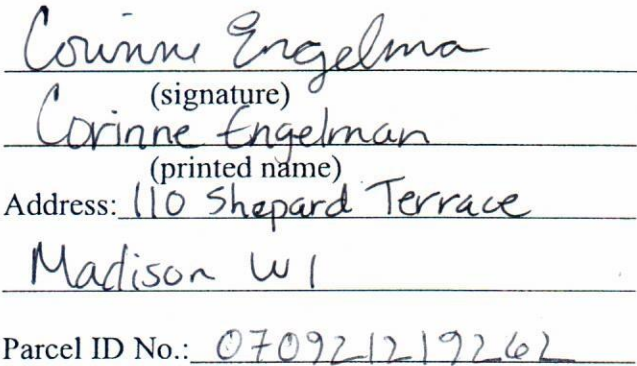 Corinne Engelma
(signature)
Corinne Engelman
(printed name)
Address: 110 Shepard Terrace
Madison WI
Parcel ID No.: 070921219262